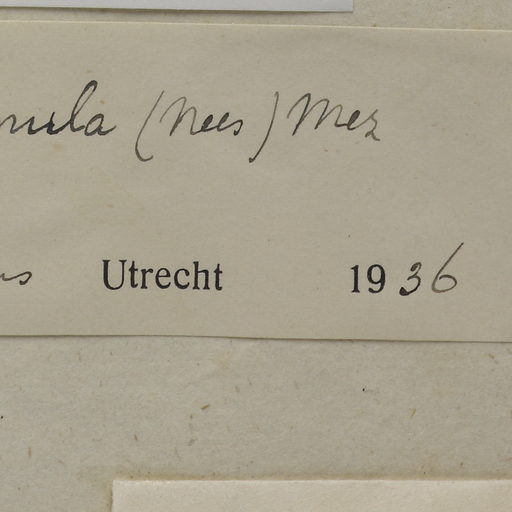 (Nees) Mez
Utrecht 1936